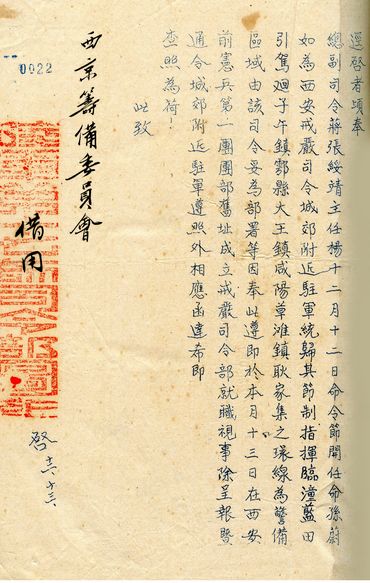 逕啓者頃奉
總副司令蔣張綏靖主任楊十二月十二日命令節開任命孫蔚
如為西安戒嚴司令城郊附近駐軍統歸其節制指揮臨潼藍田
引駕廻子午鎮鄠縣大王鎮咸陽草灘鎮耿家集之環線為警備
區域由該司令妥為部署等因奉此遵即於本月十三日在西安
前憲兵第一團團部舊址成立戒嚴司令部就職視事除呈報暨
通令城郊附近駐軍遵照外相應函達希即
查照為荷！
此致
西京籌備委員會
借用
啓 十二、十三、
0022